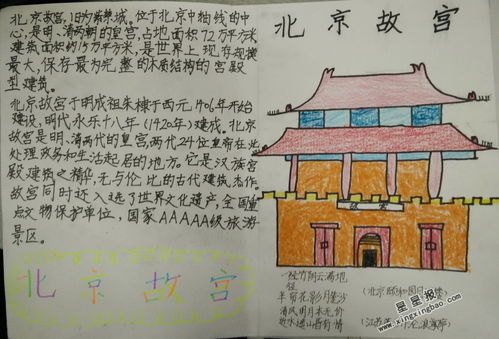 北京故宫,旧为紫禁城。位于北京中轴线的中
心,是明、清两朝的皇宫,占地面积72万平方米
建筑面积约15万平方米,是世界上现存规模
最大,保存最为完整的木质结构的宫殿
型建筑。
北京故宫于明成祖朱棣于西元1406年开始
建设,明代永乐十八年(1420年)建成。北京
故宫是明、清两代的皇宫,两代24位皇帝在此
处理政务和生活起居的地方。它是汉族宫
殿建筑之精华,无与伦比的古代建筑杰作
故宫同时还入选了世界文化遗产,全国重
点文物保护单位,国家AAAAA级旅游
景区。
北京故宫
北京故宫
故宫
一径竹阴云满地
半帘花影月笼沙
(北京颐和园月
清风明月本无价
近水远山皆有情
(江苏
星星报
www.xingxingbao.com